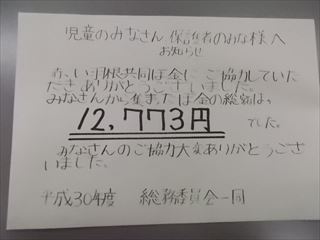 児童のみなさん 保護者のみな様へ
お知らせ
赤い羽根共同ぼ金にご協力していた
だきありがとうございました。
みなさんから集まったぼ金の総額は、
12,773円 でした。
みなさんのご協力大変ありがとうござ
いました。
平成30年度 総務委員会一同